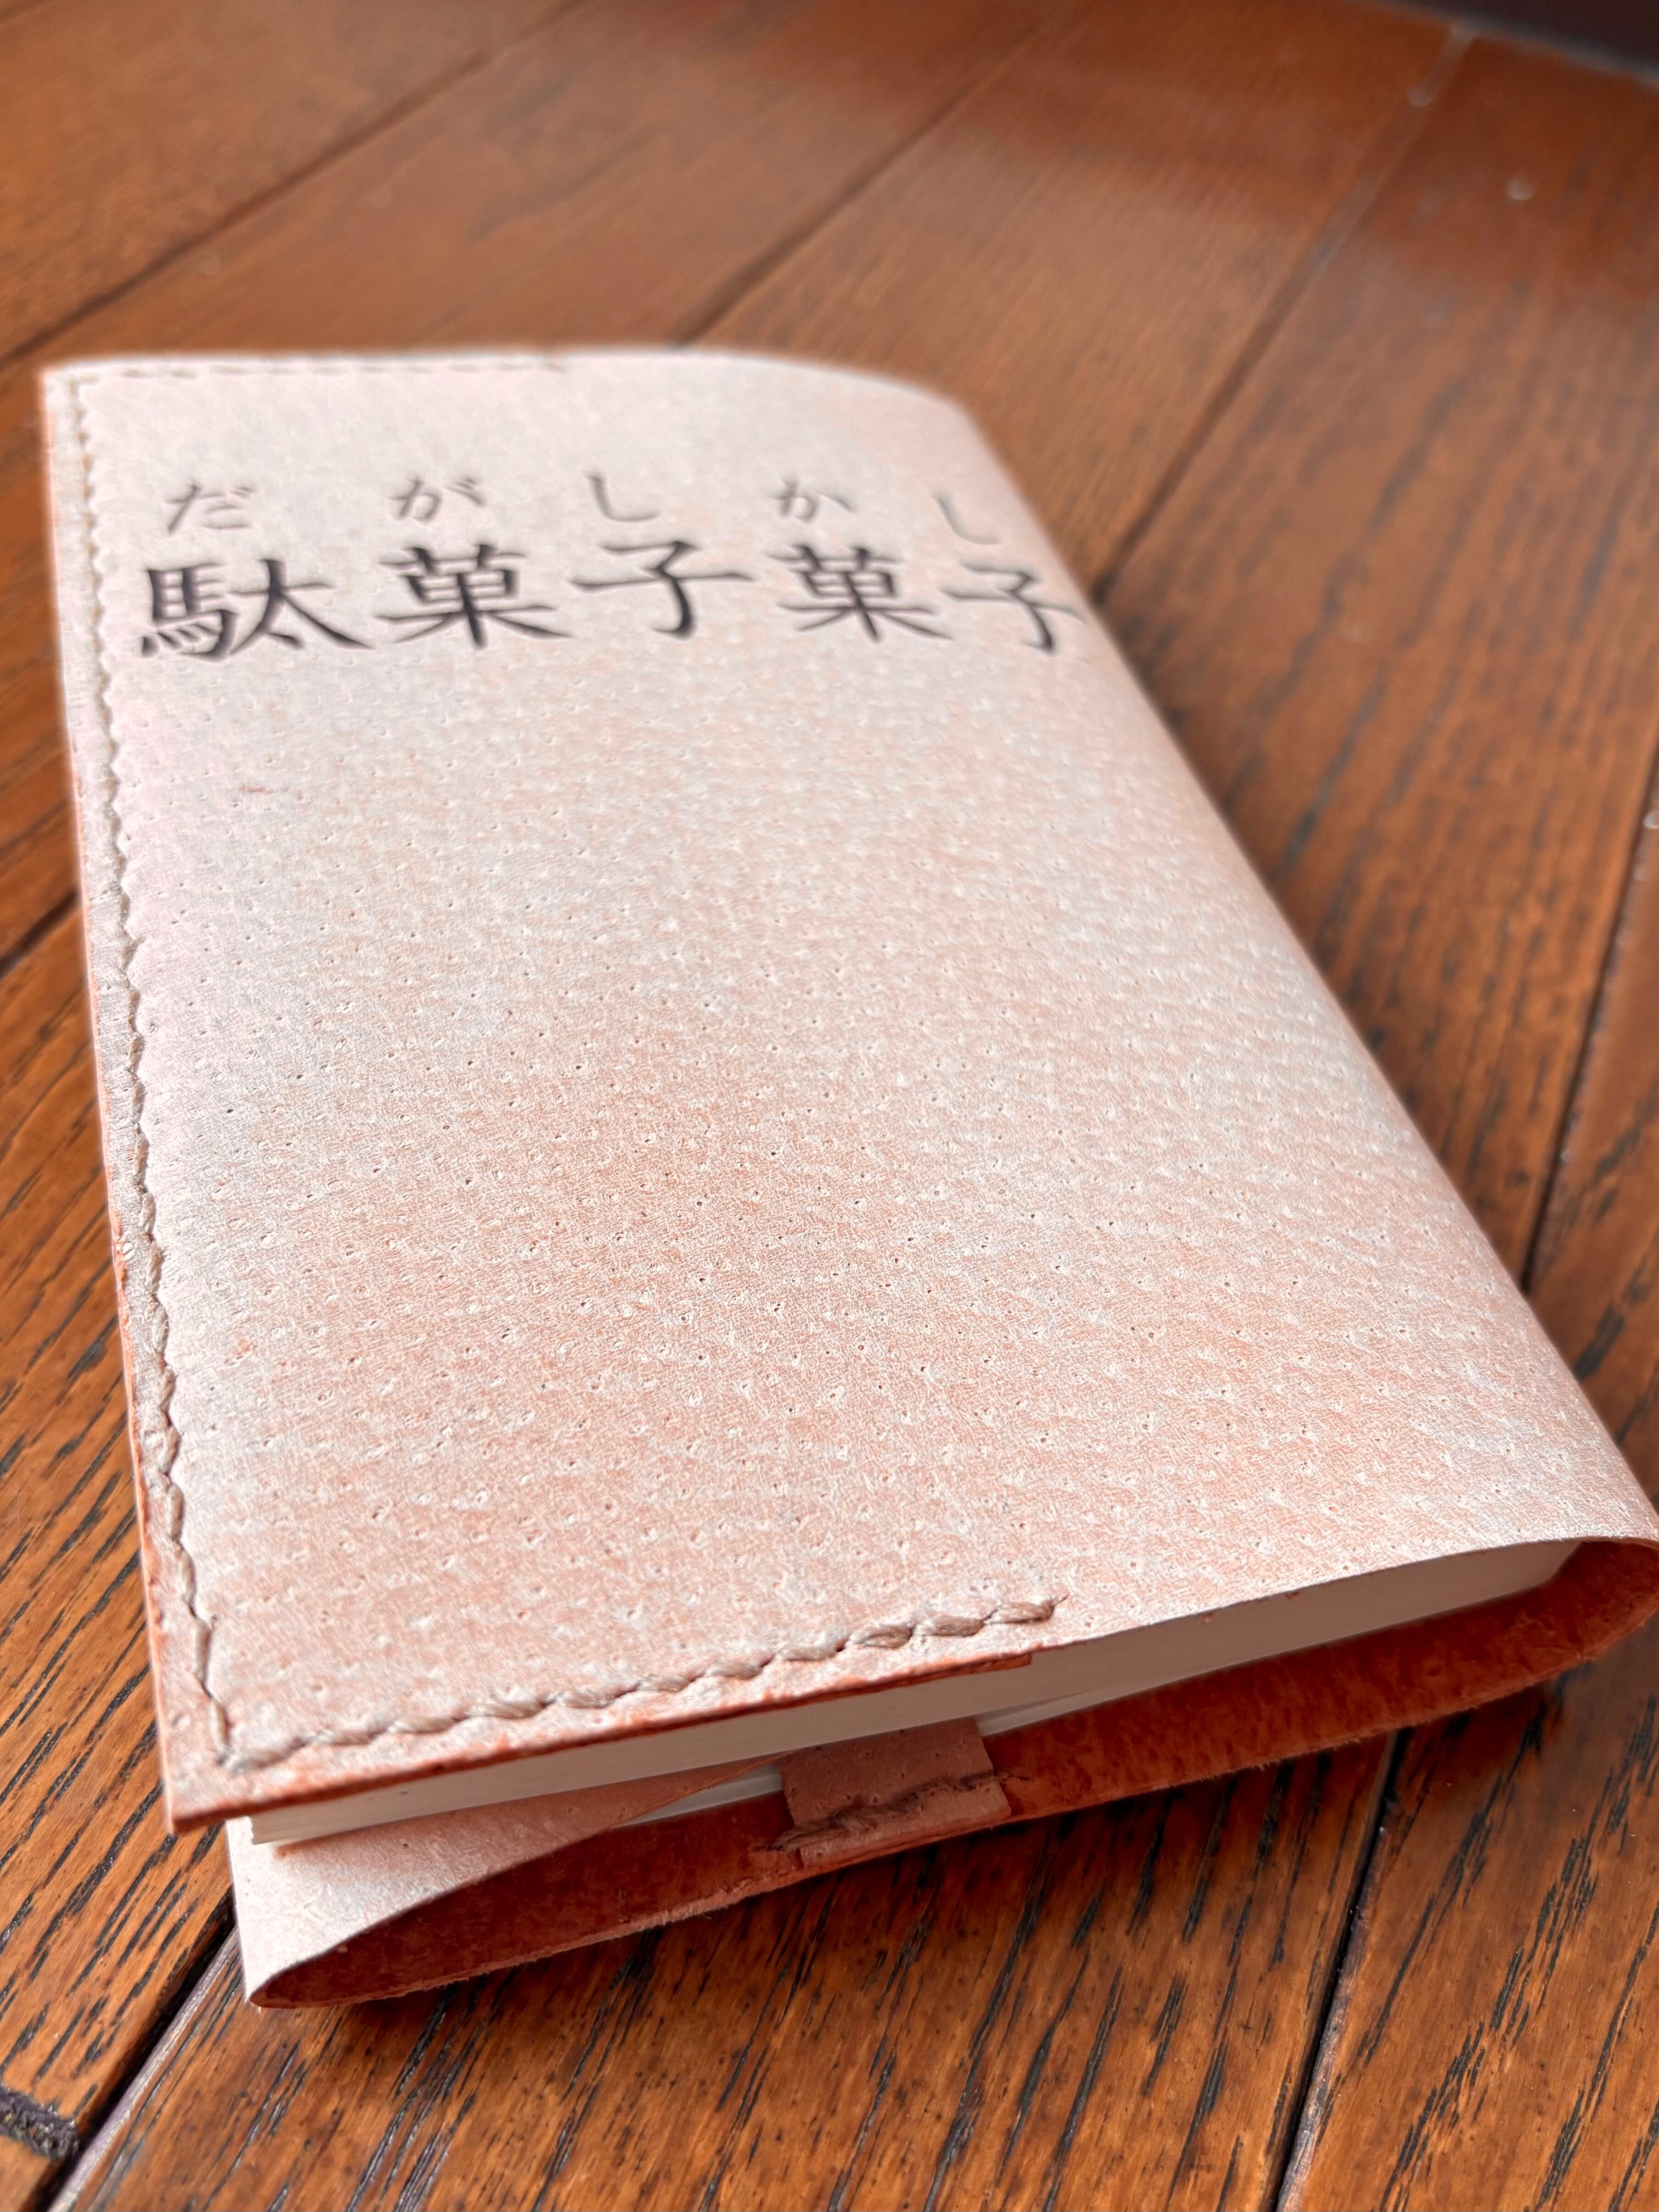 だがしかし
駄菓子菓子